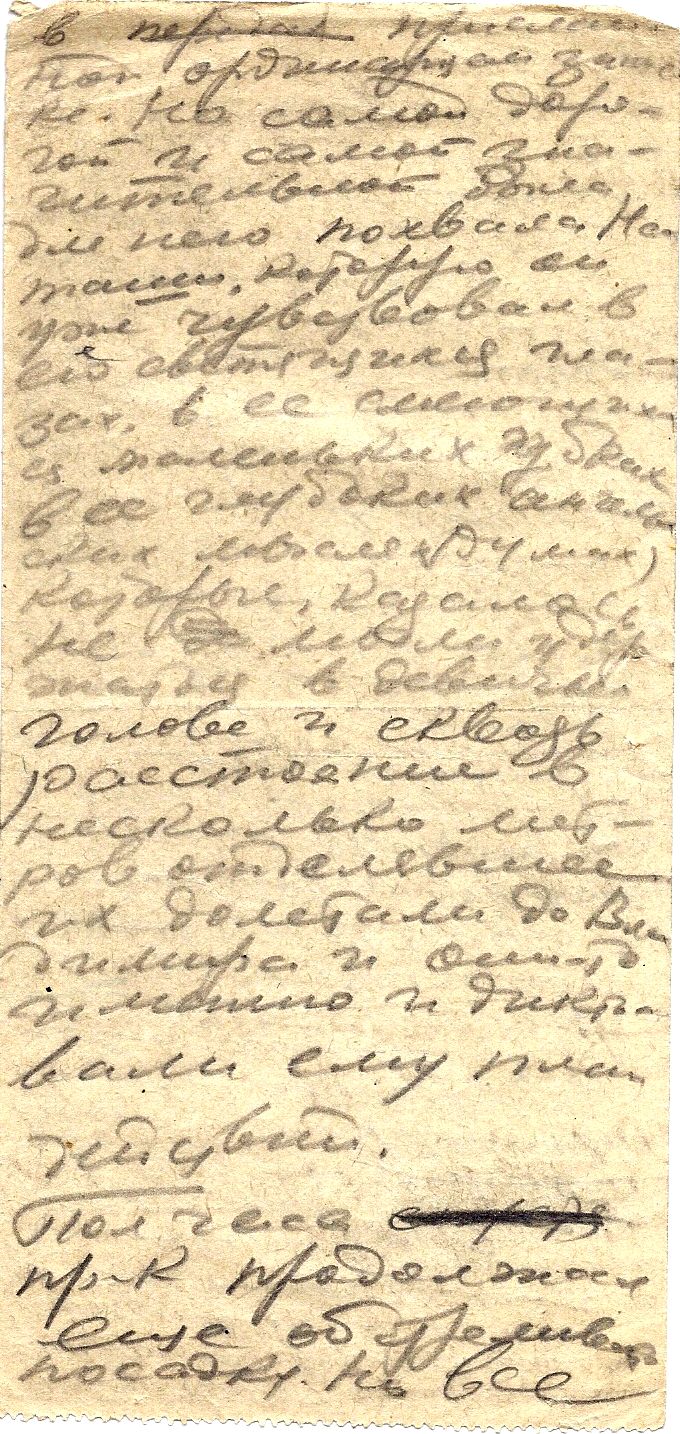 в передах прислан
ной ординарцем запис
ке. Но самой доро-
гой и самой зна-
чительной была
для него похвала На
таши, которую он
уже чувствовал в
ее светящихся гла-
зах, в ее смеющих
ся маленьких губках
в ее глубоких
мыслях (думах)
которые, казалось
не могли удер
жаться в девичьей
голове и сквозь
расстояние в
несколько мет-
ров отделявшее
их долетали до Вла
димира и они-то
именно и дикто
вали ему план
действий.
Пол часа
пр-к продолжал
еще обстреливать
посадку. Но все